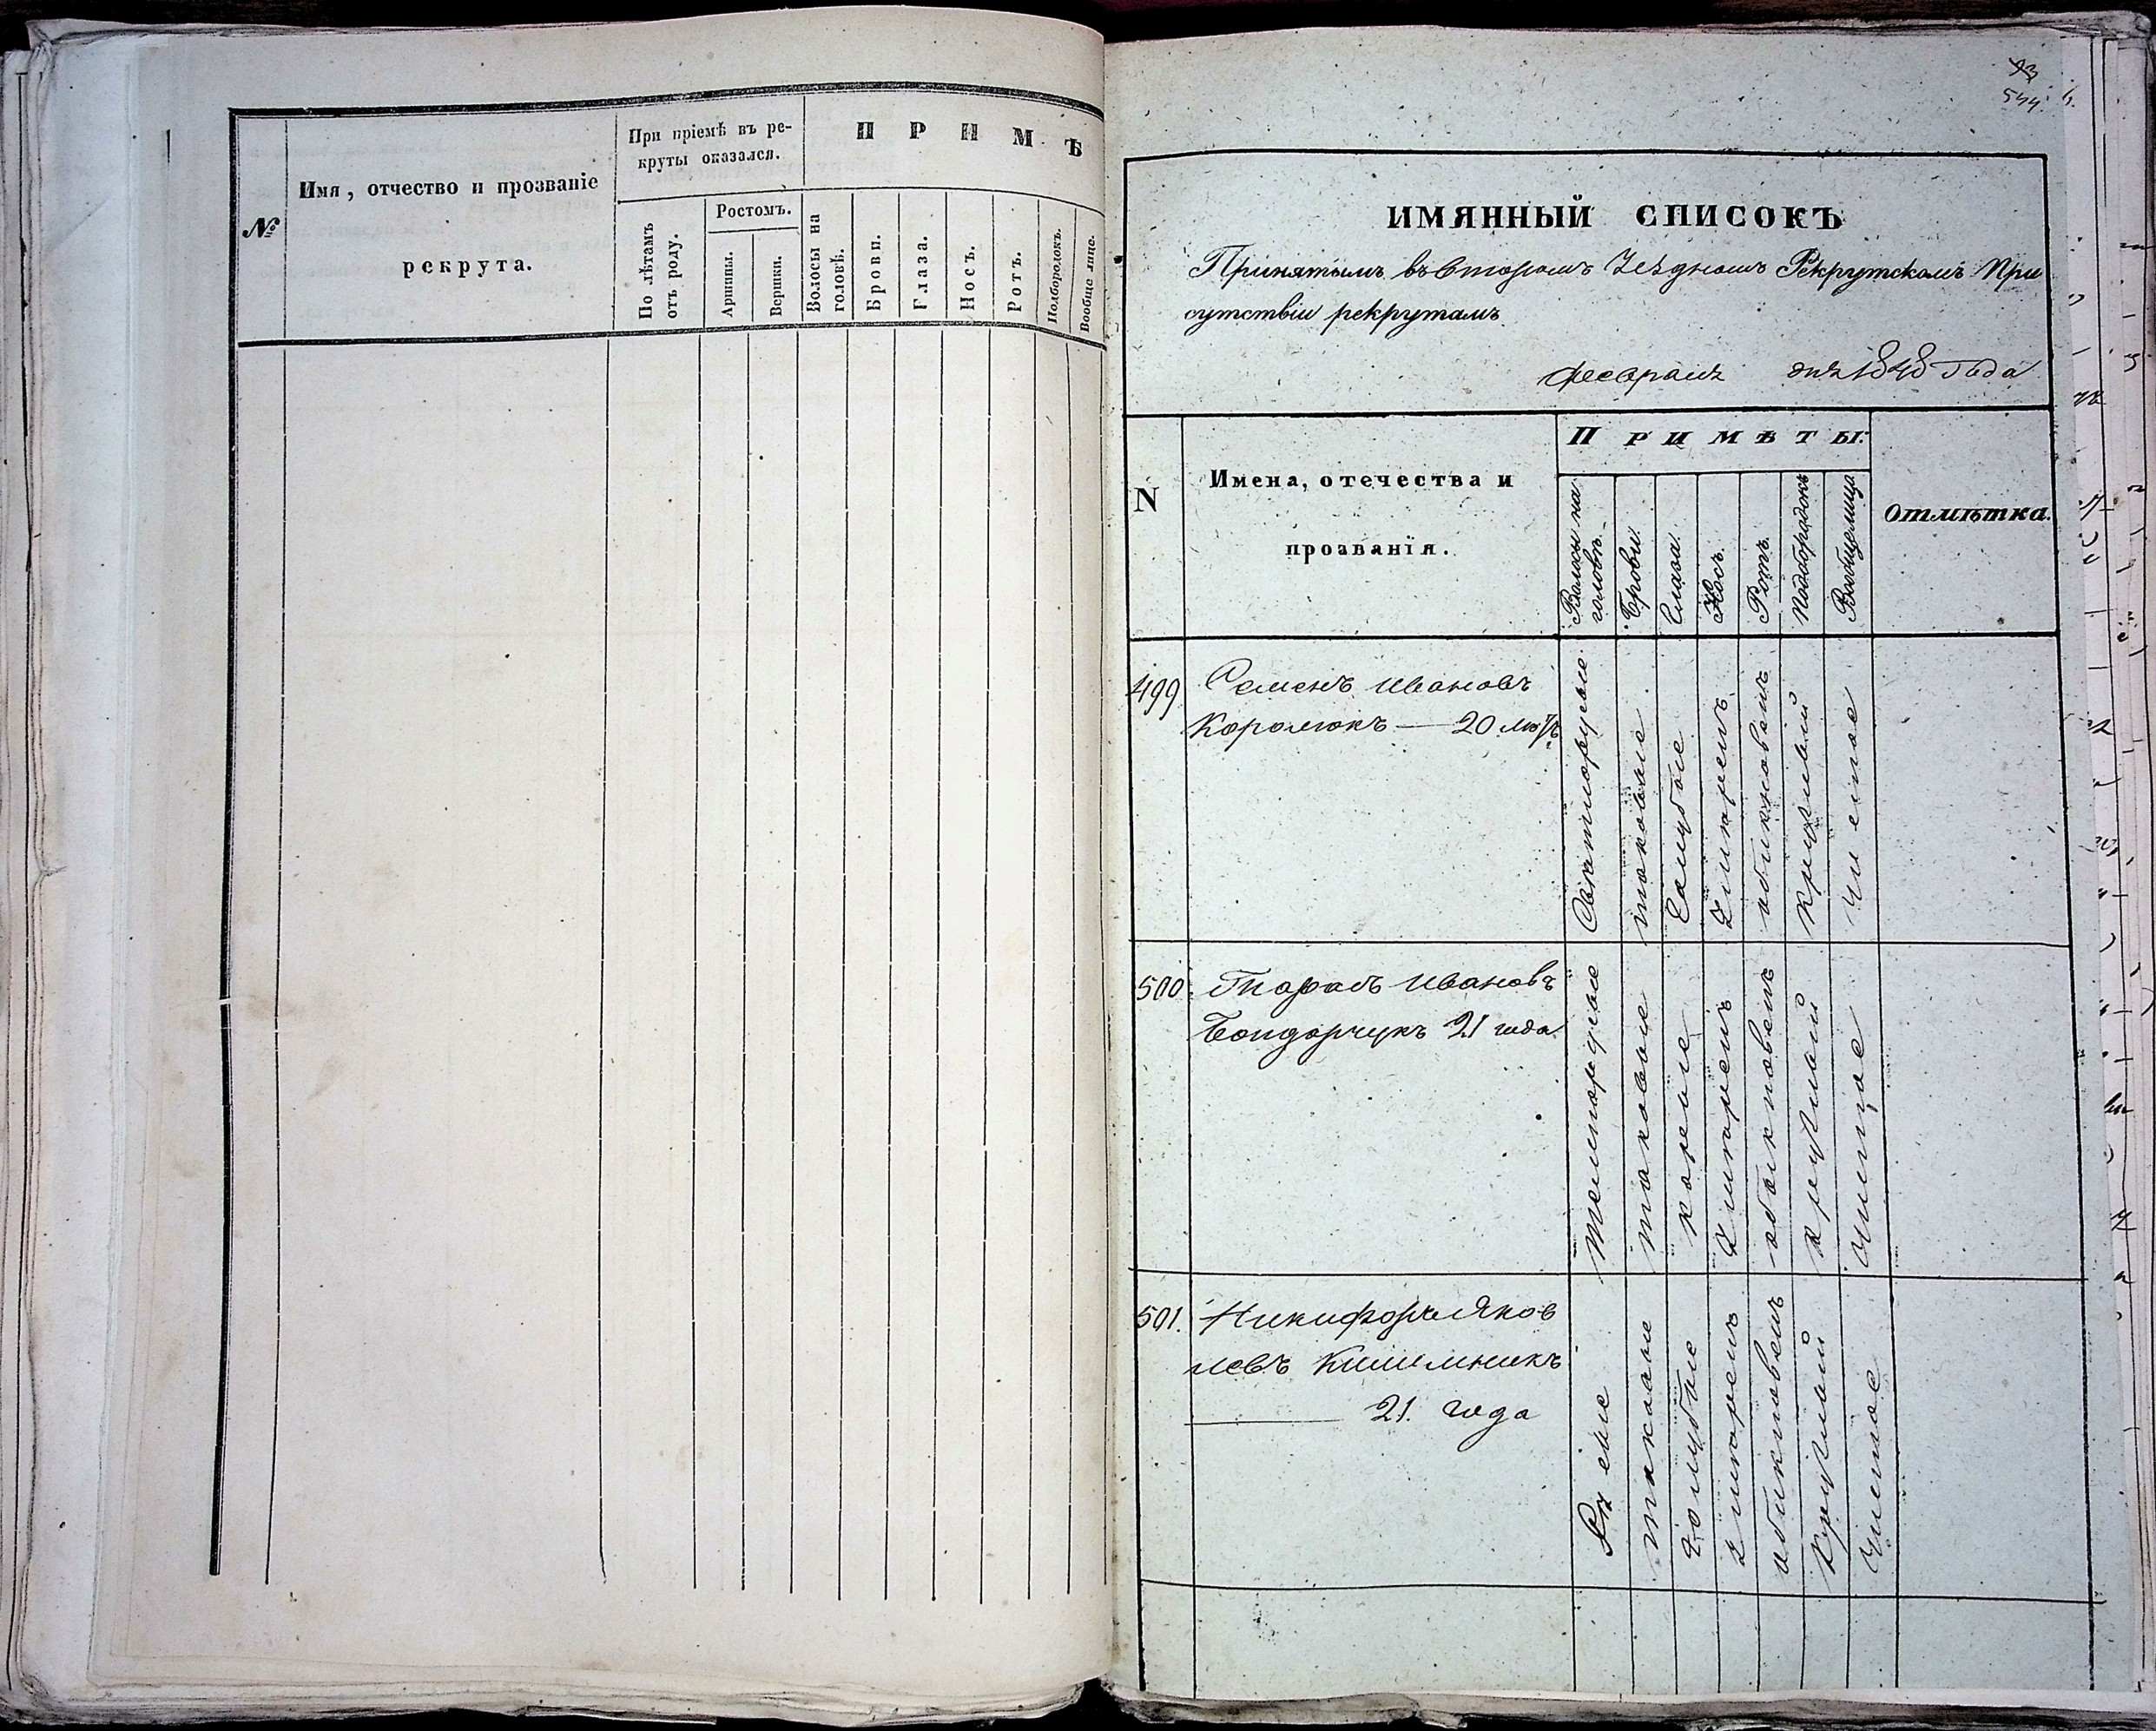 №
Имя, отчество и прозваніе
рекрута.
При пріемѣ въ ре-
круты оказался.
По лѣтамъ
отъ роду.
Ростомъ.
Аршины.
Вершки.
П Р И М Ѣ
Волосы на
головѣ.
Брови.
Глаза.
Носъ.
Ротъ.
Подбородокъ.
Вообще лице.
93
544.
ИМЯННЫЙ СПИСОКЪ
Принятымъ въ второмъ Уѣздномъ Рекрутскомъ При
сутствіи рекрутамъ
февраля дня 1848 года
N
Имена, отечества и
прозванія.
П Р И М Ѣ Т Ы.
Волосы на
головѣ.
Брови.
Глаза.
Носъ.
Ротъ.
Подбородокъ
Вообще лица
Отмѣтка.
499
Семенъ Ивановъ
Королюкъ — 20 лѣтъ
Светлорусые
таковые
Голубые
умѣренъ
обыкновенъ
круглый
чистое
500.
Тарасъ Ивановъ
Бондарчукъ 21 года
темнорусые
таковые
карые
умѣренъ
обыкновенъ
круглый
чистое
501.
Никифоръ Яков
левъ
21. года
Русые
таковые
голубые
умѣренъ
обыкновенъ
круглый
чистое